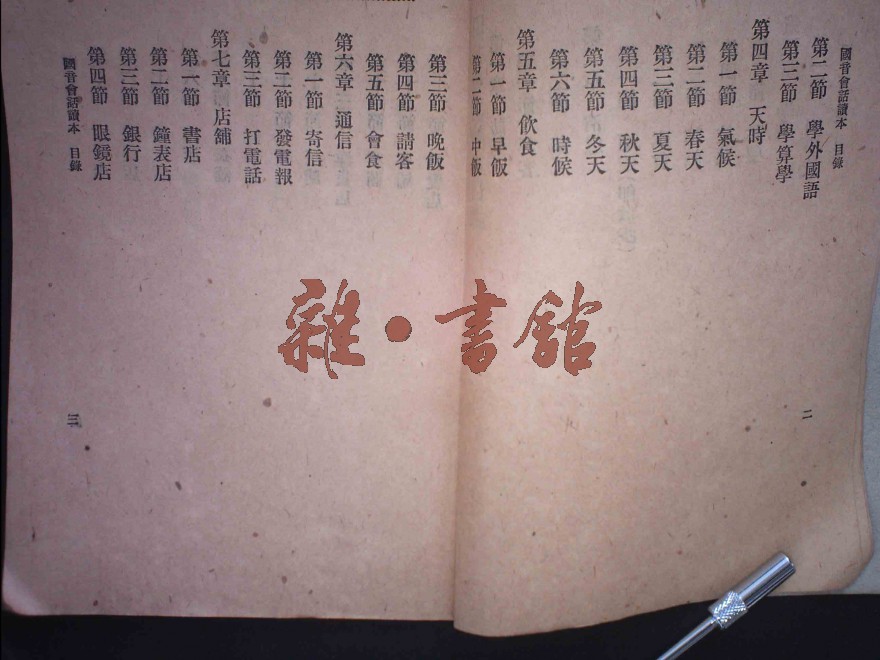 國音會話讀本 目錄
第二節 學外國語
第三節 學算學
第四章 天時
第一節 氣候
第二節 春天
第三節 夏天
第四節 秋天
第五節 冬天
第六節 時候
第五章 飲食
第一節 早飯
第二節 中飯
二
第三節 晚飯
第四節 請客
第五節 會食
第六章 通信
第一節 寄信
第二節 發電報
第三節 打電話
第七章 店舖
第一節 書店
第二節 鐘表店
第三節 銀行
第四節 眼鏡店
國音會話讀本 目錄
三
雜·書館